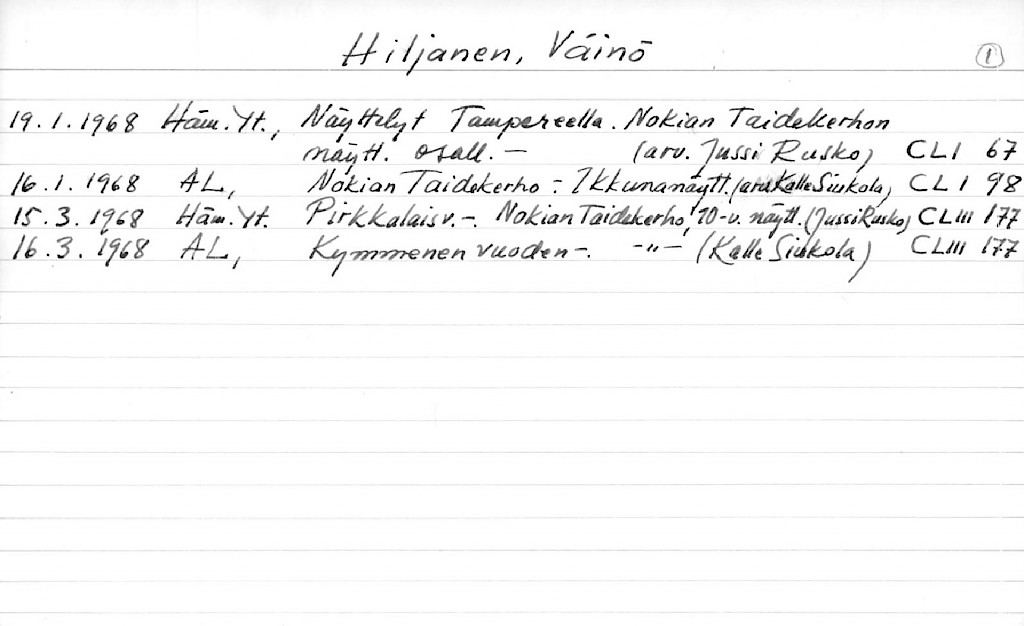 Hiljanen, Väinö 1
19.1.1968 Häm.Yt., Näyttelyt Tampereella. Nokian Taidekerhon
näytt. osall. — (arv. Jussi Rusko) CLI 67
16.1.1968 AL, Nokian Taidekerho -: Ikkunanäytt. (arv. Kalle Siukola) CLI 98
15.3.1968 Häm.Yt. Pirkkalaisv. -. Nokian Taidekerho, 10-v. näytt. (Jussi Rusko) CLIII 177
16.3.1968 AL, Kymmenen vuoden -. -"- (Kalle Siukola) CLIII 177